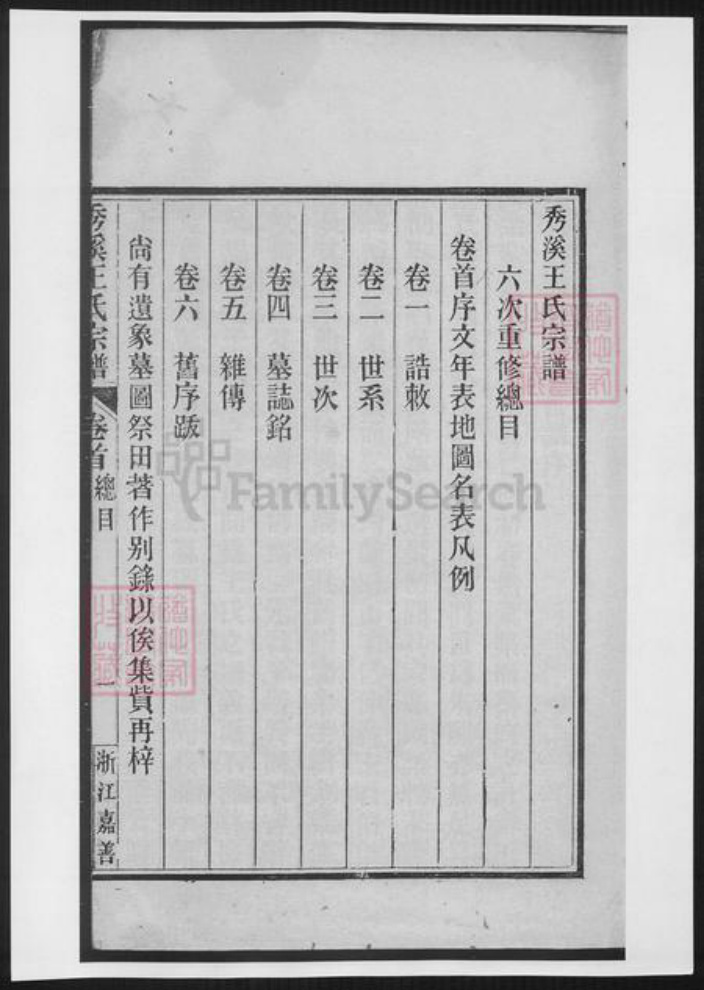 秀溪王氏宗譜
六次重修總目
卷首序文年表地圖名表凡例
卷一 誥敕
卷二 世系
卷三 世次
卷四 墓誌銘
卷五 雜傳
卷六 舊序跋
尙有遺象墓圖祭田著作別錄以俟集貲再梓
秀溪王氏宗譜 卷首 總目 一 浙江嘉善
FamilySearch